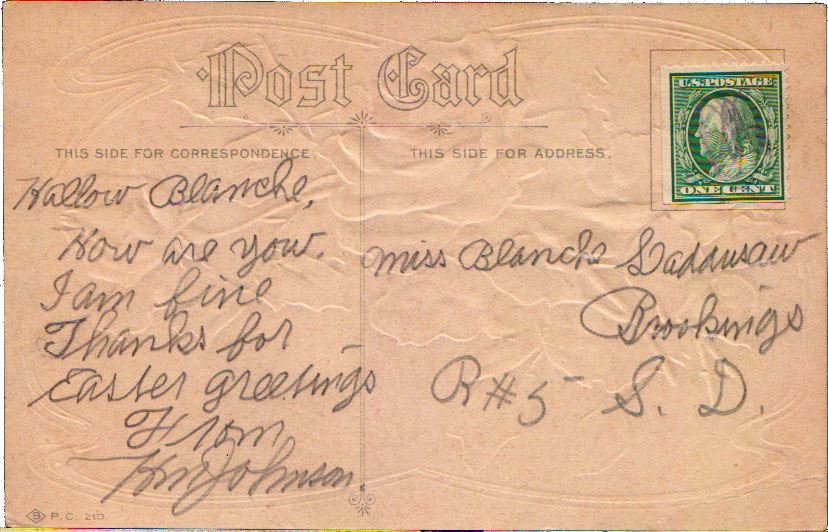 Post Card
THIS SIDE FOR CORRESPONDENCE.
THIS SIDE FOR ADDRESS.
U.S. POSTAGE
ONE CENT
Hallow Blanche,
How are you.
I am fine
Thanks for
Easter greetings
From
Johnson.
Miss Blanche
Brookings
R#5 S. D.
P.C. 210